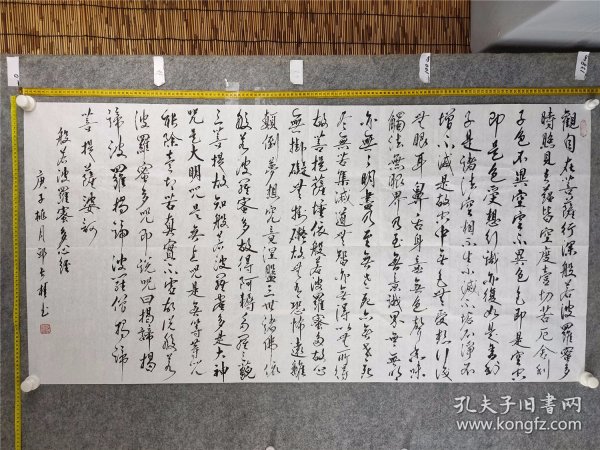 觀自在菩薩行深般若波羅蜜多
時照見五蘊皆空度一切苦厄舍利
子色不異空空不異色色即是空空
即是色受想行識亦復如是舍利
子是諸法空相不生不滅不垢不淨不
增不滅是故空中無色無受想行識
無眼耳鼻舌身意無色聲香味
觸法無眼界乃至無意識界無無明
亦無無明盡乃至無老死亦無老死
盡無苦集滅道無智亦無得以無所得
故菩提薩埵依般若波羅蜜多故心
無掛礙無掛礙故無有恐怖遠離
顛倒夢想究竟涅盤三世諸佛依
般若波羅蜜多故得阿耨多羅三藐
三菩提故知般若波羅蜜多是大神
咒是大明咒是無上咒是無等等咒
能除一切苦真實不虛故說般若
波羅蜜多咒即說咒曰揭諦揭
諦波羅揭諦波羅僧揭諦
菩提薩婆訶
般若波羅蜜多心經
庚子桃月
孔夫子旧書网
www.kongfz.com